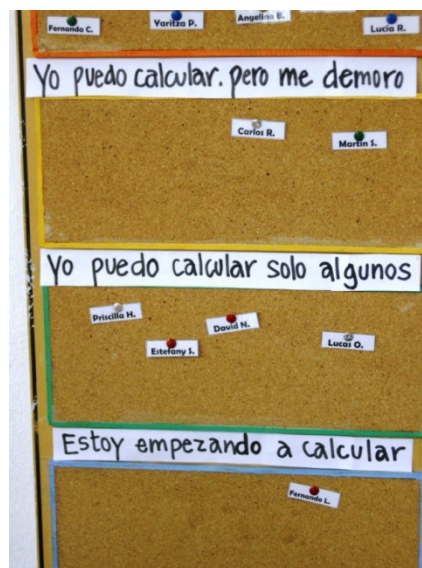 Fernanda C.
Yaritza P.
Angelina B.
Lucía R.
Yo puedo calcular. pero me demoro
Carlos R.
Martín S.
Yo puedo calcular solo algunos
Priscilla H.
David N.
Estefany S.
Lucas O.
Estoy empezando a calcular
Fernando L.